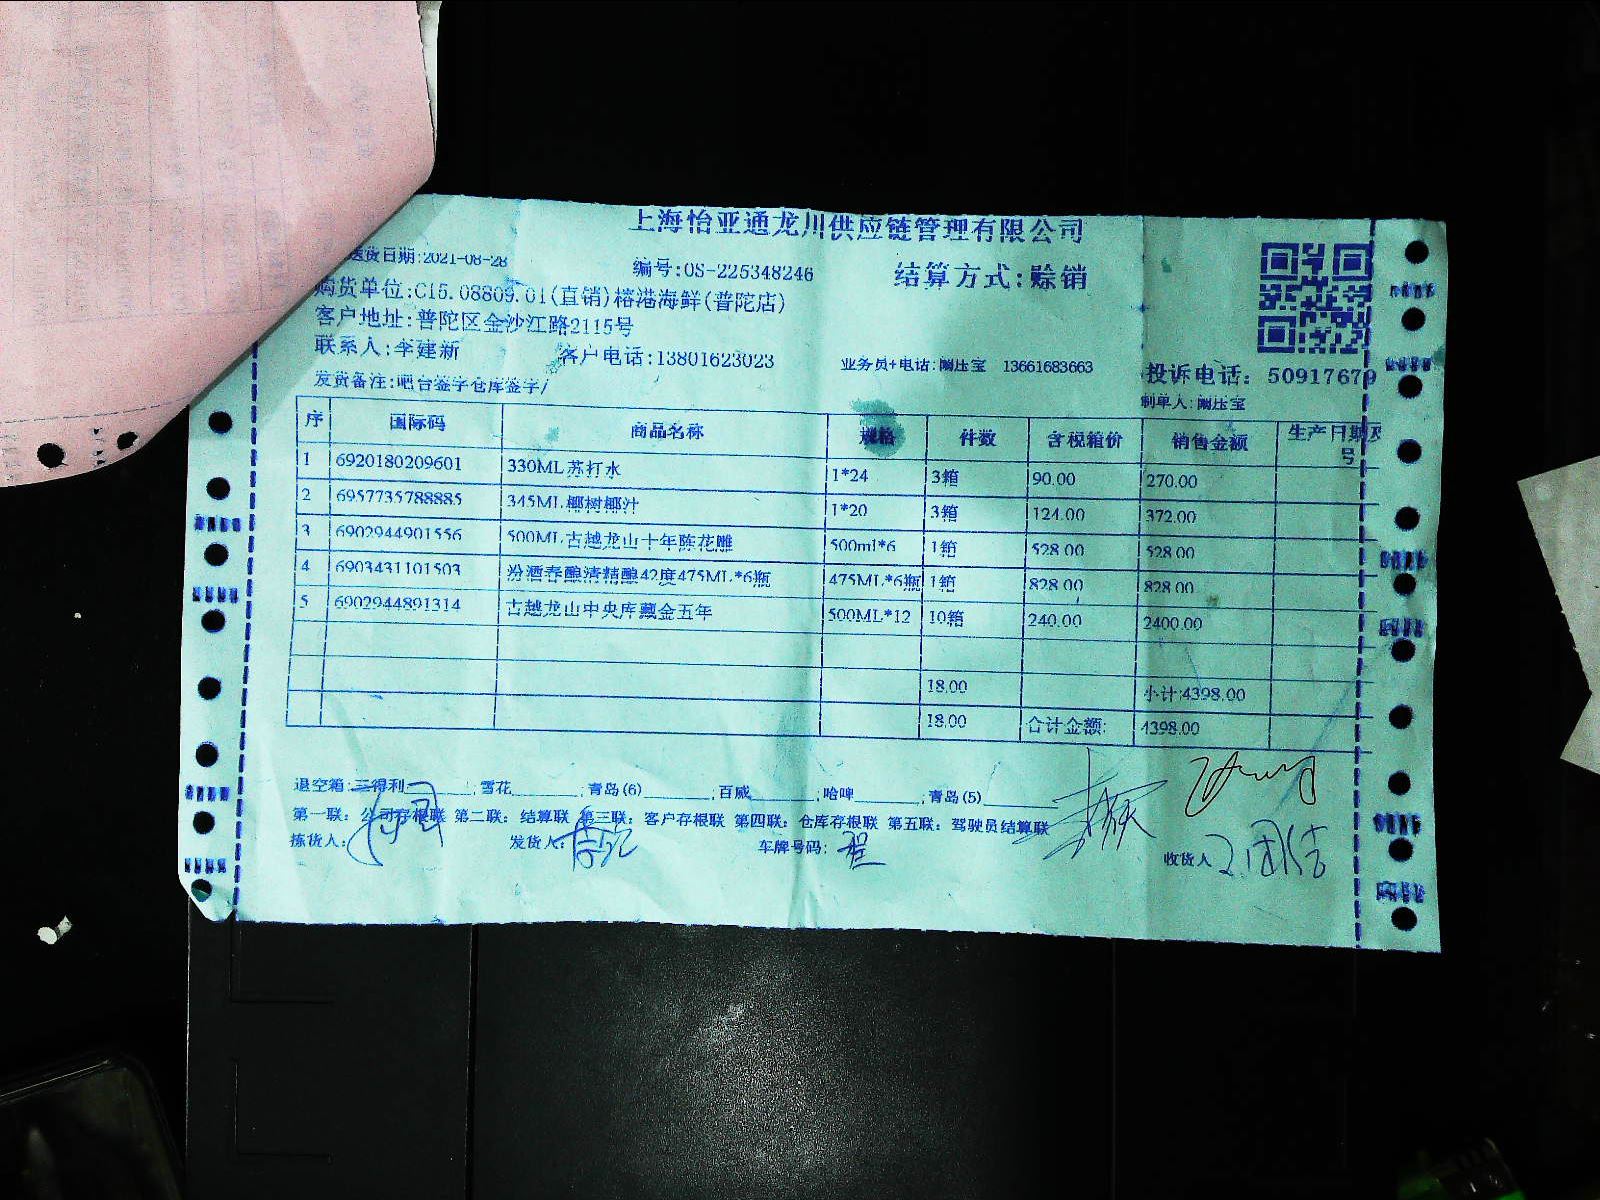 上海怡亚通龙川供应链管理有限公司
送货日期:2021-08-28 编号:OS-225348246 结算方式:赊销
购货单位:C15.08809.01(直销)榕港海鲜(普陀店)
客户地址:普陀区金沙江路2115号
联系人:李建新 客户电话:13801623023 业务员+电话: 13661683663 投诉电话: 50917679
发货备注:吧台签字仓库签字/ 制单人:
序 国际码 商品名称 规格 件数 含税箱价 销售金额 生产日期及
号
1 6920180209601 330ML苏打水 1*24 3箱 90.00 270.00
2 6957735788885 345ML椰树椰汁 1*20 3箱 124.00 372.00
3 6902944901556 500ML古越龙山十年陈花雕 500ml*6 1箱 528.00 528.00
4 6903431101503 汾酒春酿清精酿42度475ML*6瓶 475ML*6瓶 1箱 828.00 828.00
5 6902944891314 古越龙山中央库藏金五年 500ML*12 10箱 240.00 2400.00
18.00 小计:4398.00
18.00 合计金额: 4398.00
退空箱:三得利______;雪花______;青岛(6)______,百威______,哈啤______,青岛(5)______
第一联: 公司存根联 第二联: 结算联 第三联: 客户存根联 第四联: 仓库存根联 第五联: 驾驶员结算联
拣货人: 发货人: 车牌号码: 收货人